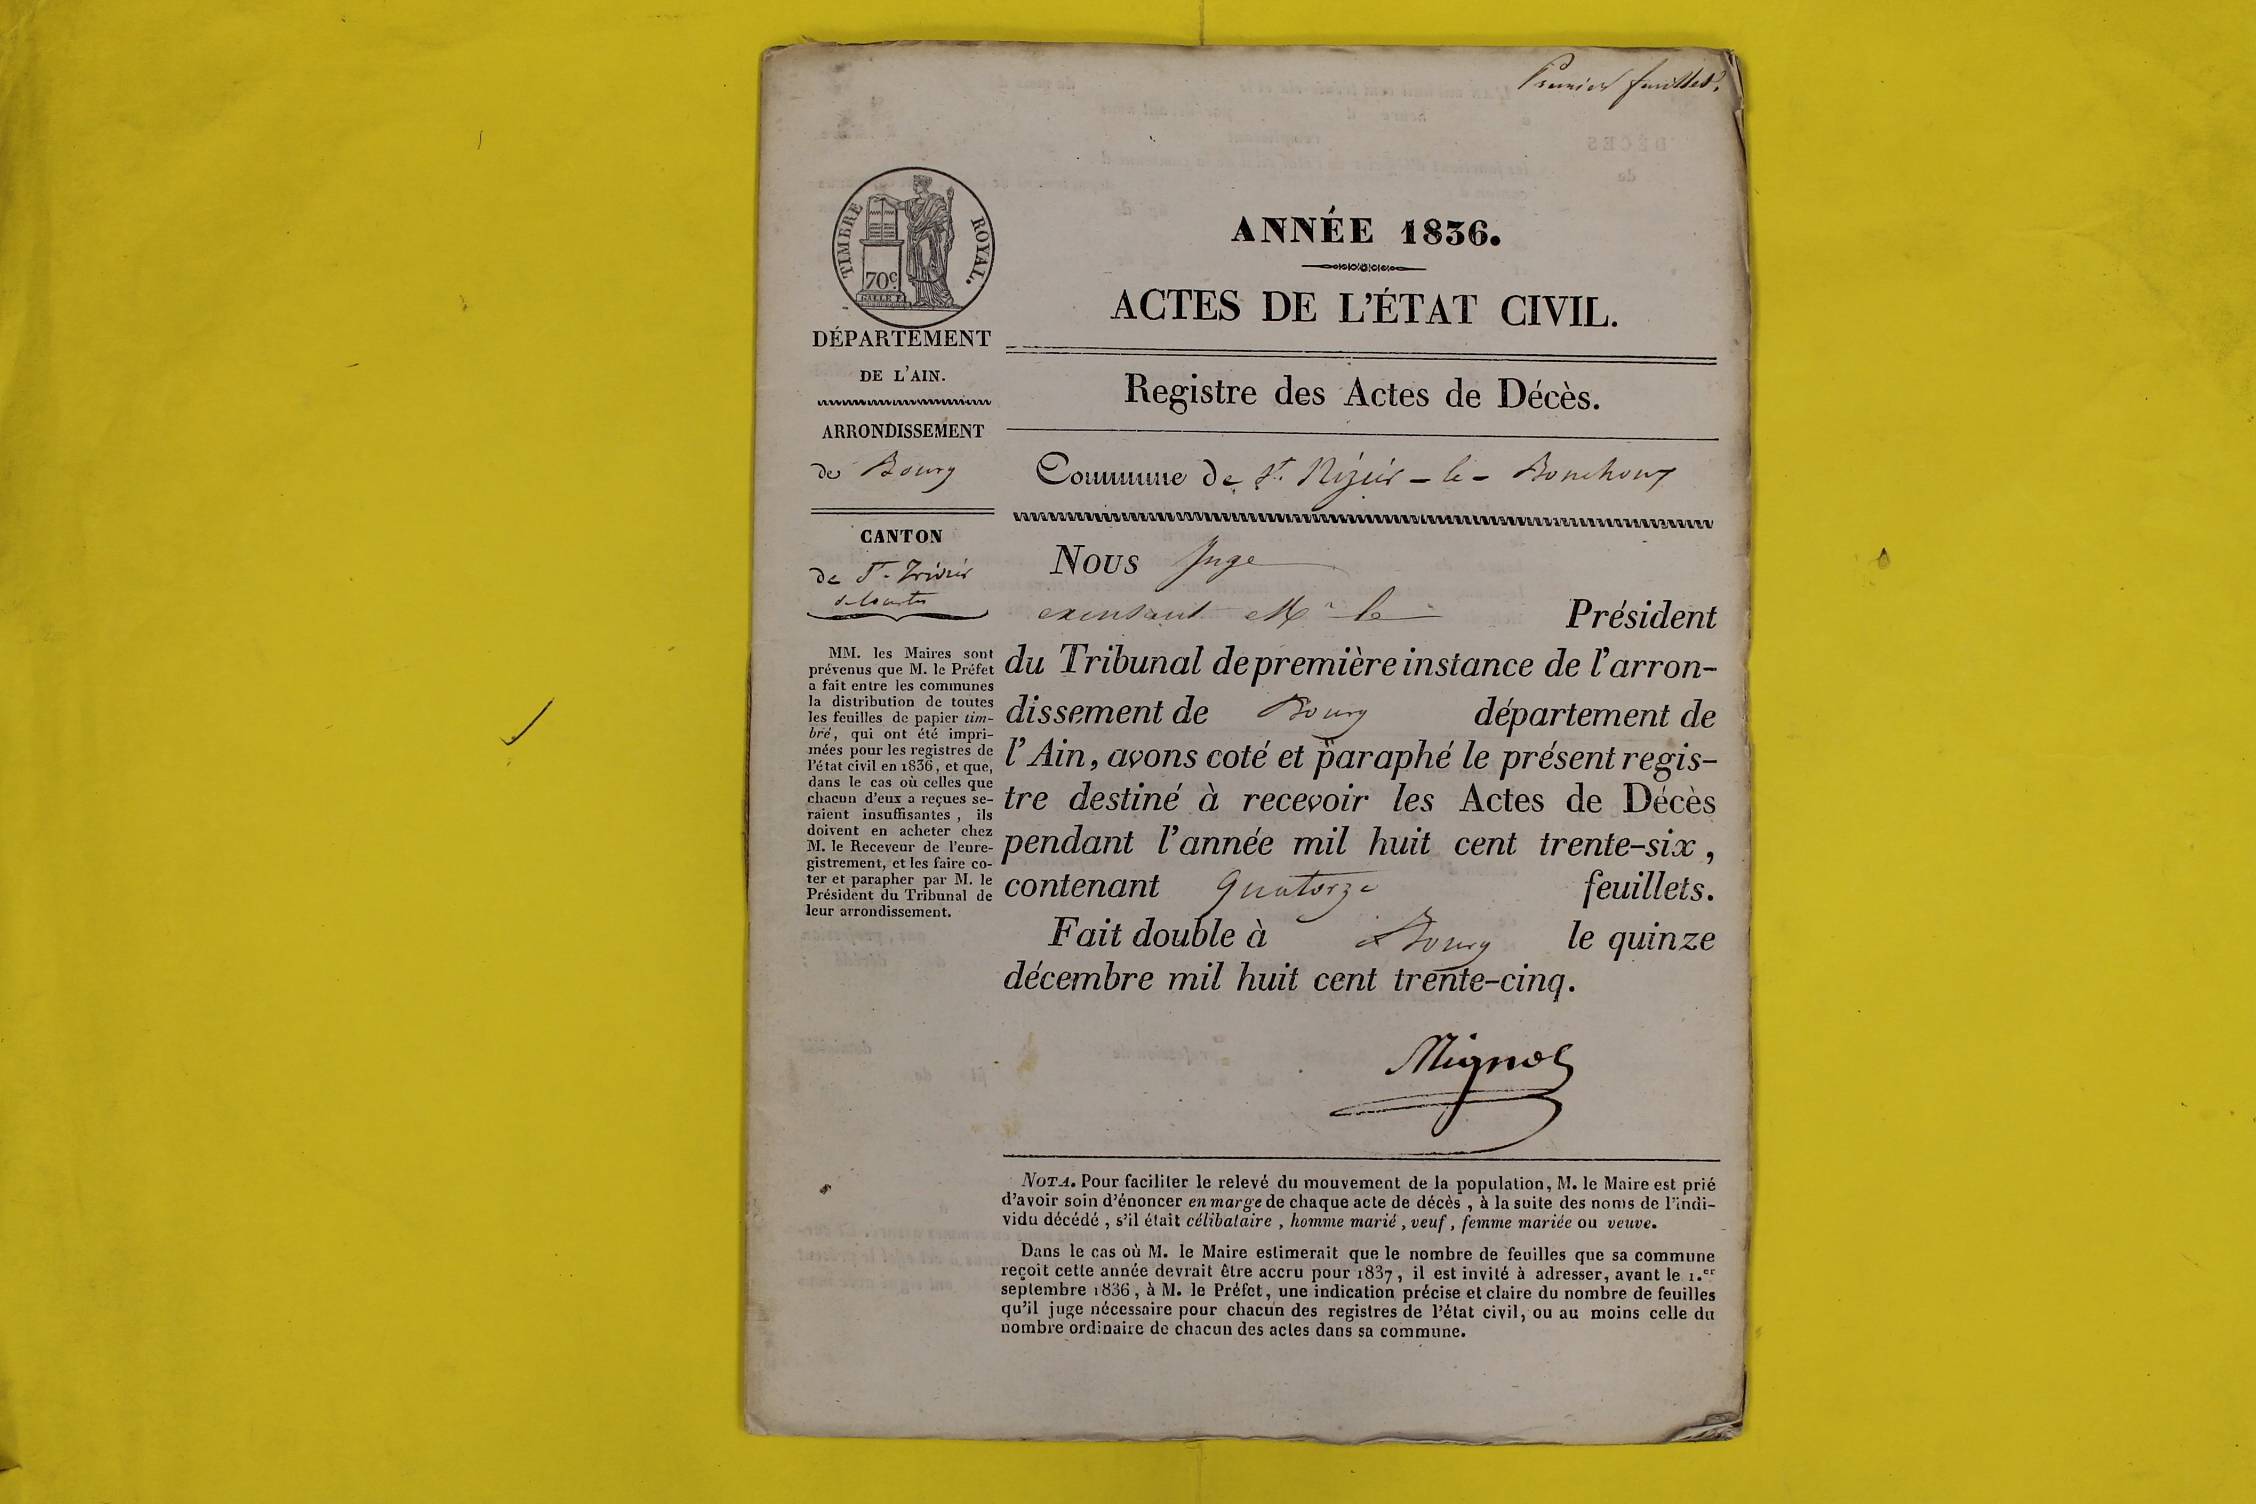 Premier feuillet.
TIMBRE ROYAL.
70c
DÉPARTEMENT
DE L'AIN.
ARRONDISSEMENT
de Bourg
CANTON
de St. Trivier
de Courtes
MM. les Maires sont
prévenus que M. le Préfet
a fait entre les communes
la distribution de toutes
les feuilles de papier tim-
bré, qui ont été impri-
mées pour les registres de
l'état civil en 1836, et que,
dans le cas où celles que
chacun d'eux a reçues se-
raient insuffisantes, ils
doivent en acheter chez
M. le Receveur de l'enre-
gistrement, et les faire co-
ter et parapher par M. le
Président du Tribunal de
leur arrondissement.
ANNÉE 1836.
ACTES DE L'ÉTAT CIVIL.
Registre des Actes de Décès.
Commune de St. Nizier-le-Bouchoux
Nous Juge
M. le Président
du Tribunal de première instance de l'arron-
dissement de Bourg département de
l'Ain, avons coté et paraphé le présent regis-
tre destiné à recevoir les Actes de Décès
pendant l'année mil huit cent trente-six,
contenant quatorze feuillets.
Fait double à Bourg le quinze
décembre mil huit cent trente-cinq.
Mignot
NOTA. Pour faciliter le relevé du mouvement de la population, M. le Maire est prié
d'avoir soin d'énoncer en marge de chaque acte de décès, à la suite des noms de l'indi-
vidu décédé, s'il était célibataire, homme marié, veuf, femme mariée ou veuve.
Dans le cas où M. le Maire estimerait que le nombre de feuilles que sa commune
reçoit cette année devrait être accru pour 1837, il est invité à adresser, avant le 1.er
septembre 1836, à M. le Préfet, une indication précise et claire du nombre de feuilles
qu'il juge nécessaire pour chacun des registres de l'état civil, ou au moins celle du
nombre ordinaire de chacun des actes dans sa commune.